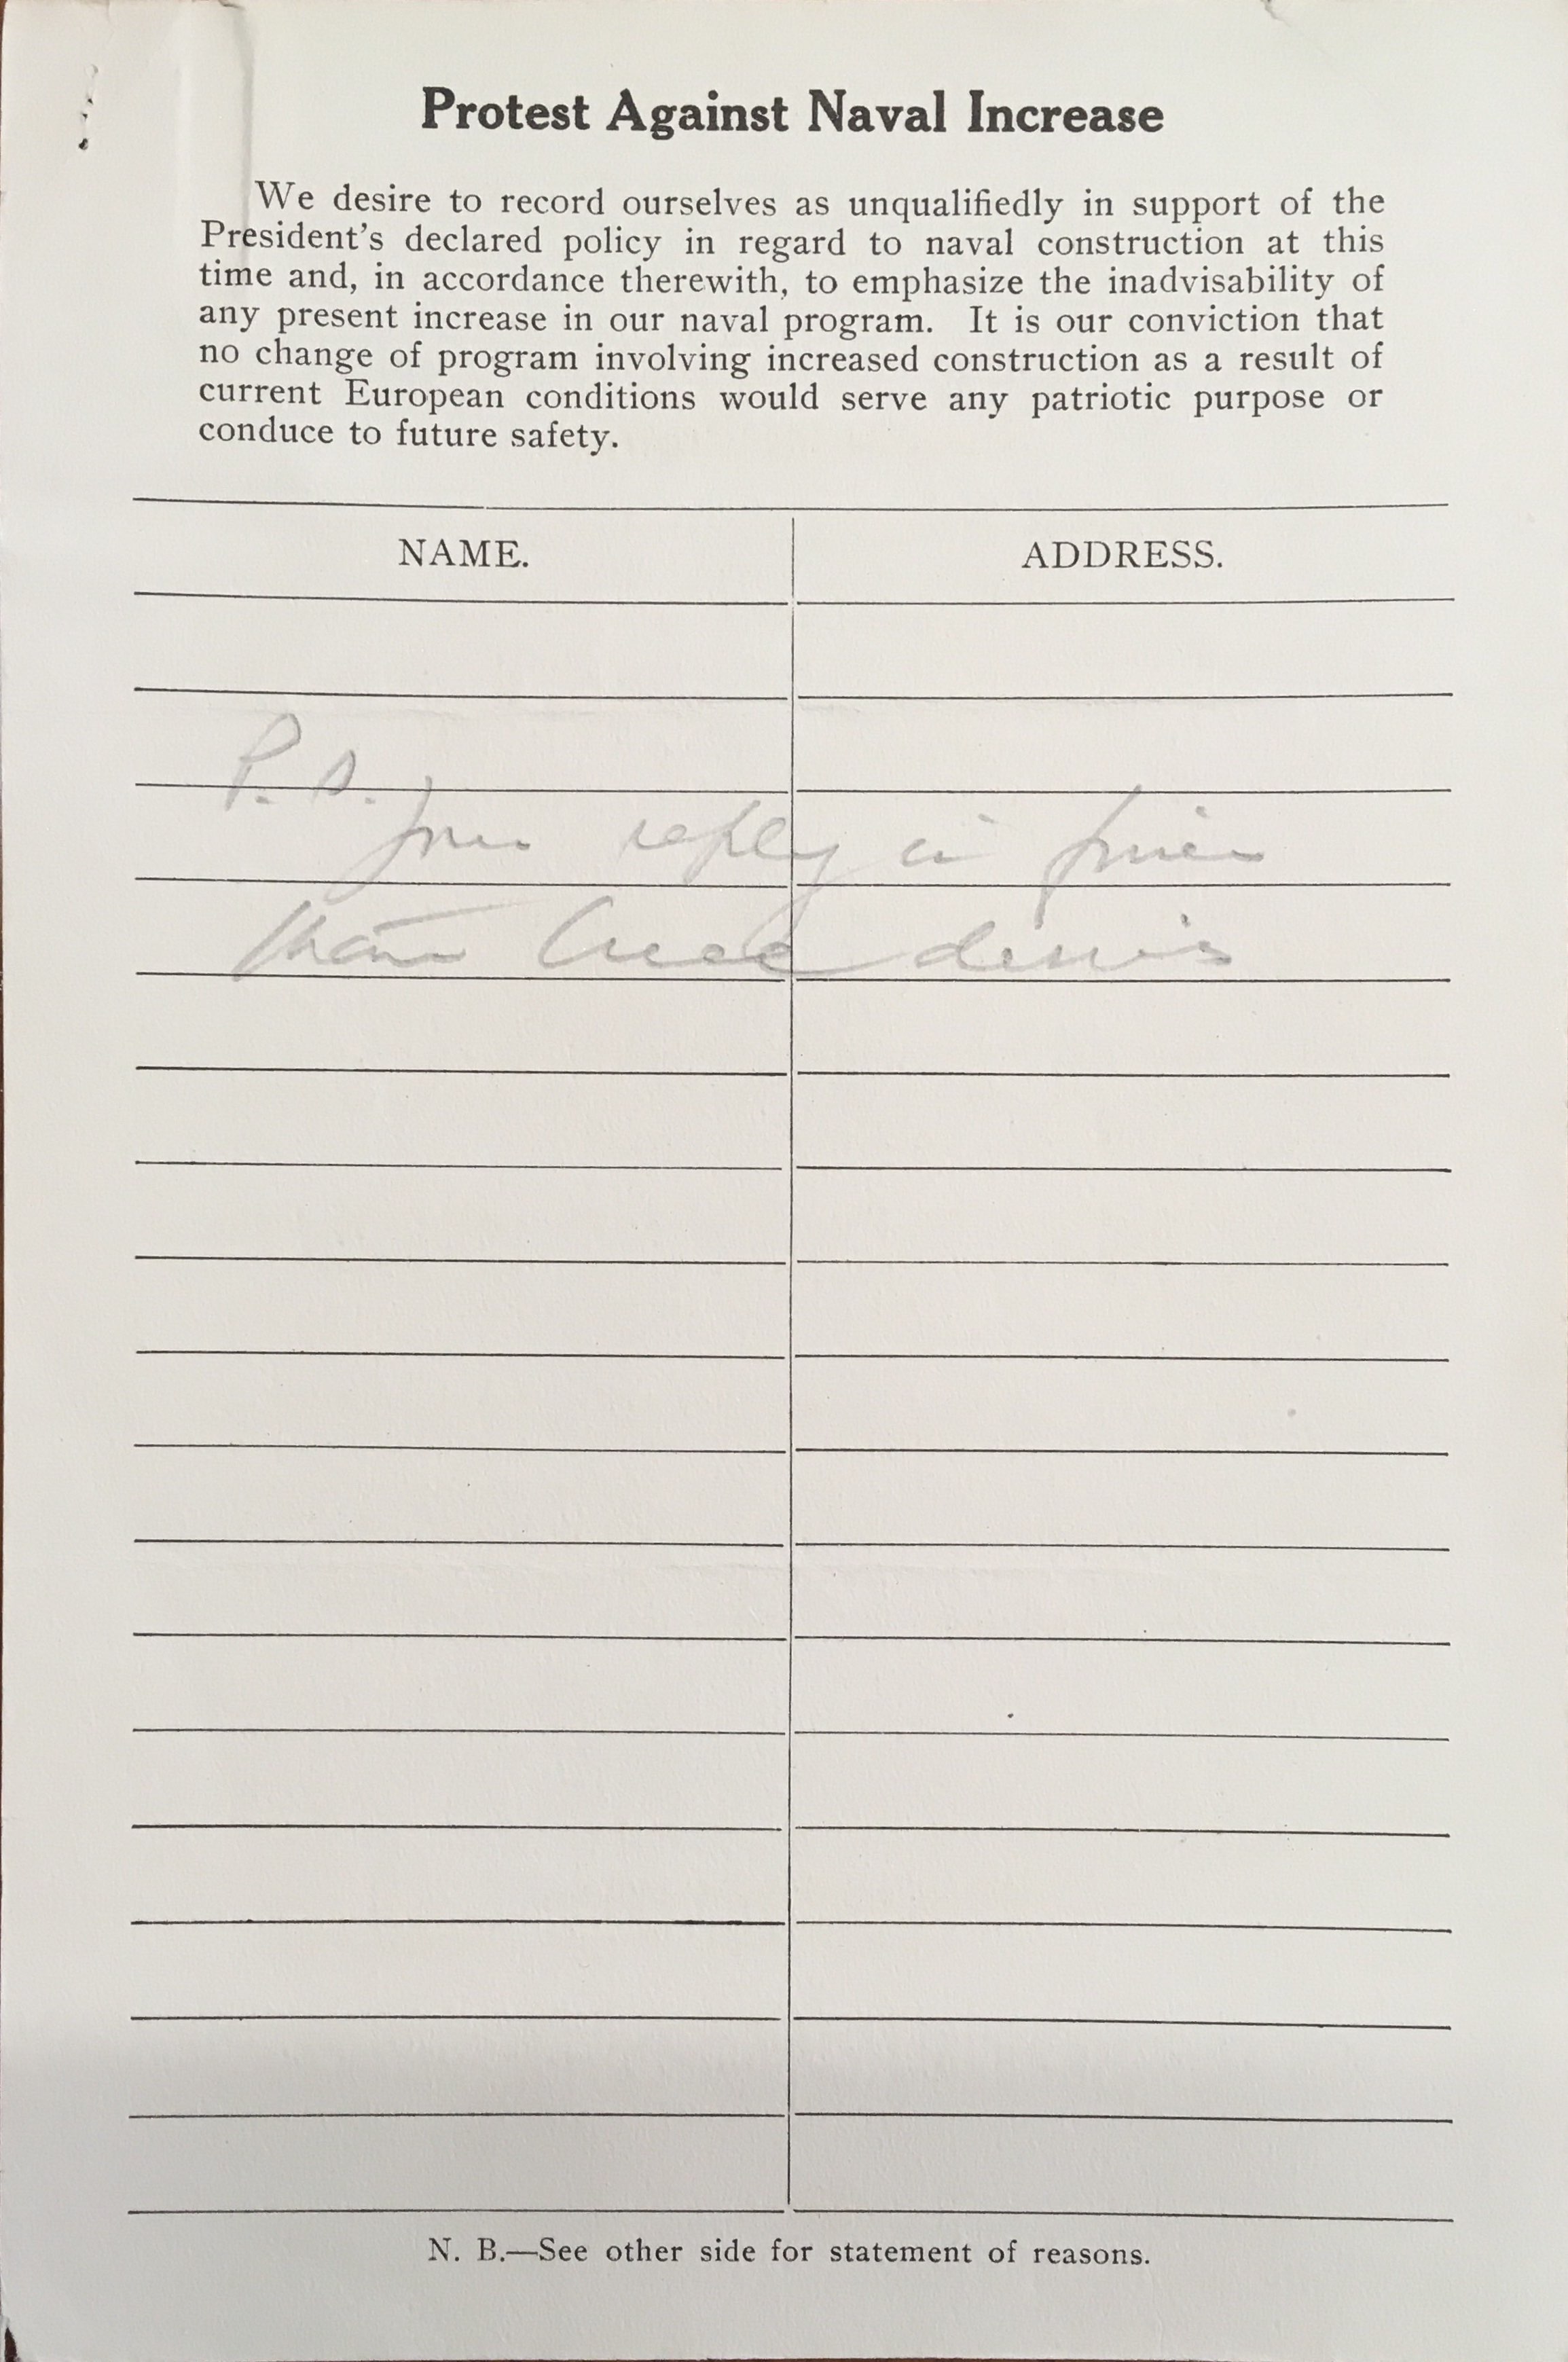 Protest Against Naval Increase
We desire to record ourselves as unqualifiedly in support of the
President's declared policy in regard to naval construction at this
time and, in accordance therewith, to emphasize the inadvisability of
any present increase in our naval program. It is our conviction that
no change of program involving increased construction as a result of
current European conditions would serve any patriotic purpose or
conduce to future safety.
NAME. ADDRESS.
P.S.
your reply is
than
N. B.—See other side for statement of reasons.